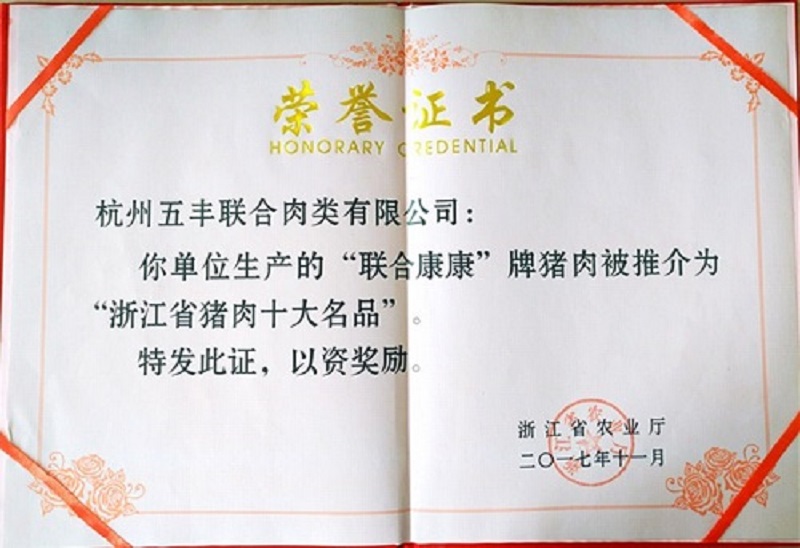 荣誉证书
HONORARY CREDENTIAL
杭州五丰联合肉类有限公司：
你单位生产的“联合康康”牌猪肉被推介为
“浙江省猪肉十大名品”。
特发此证，以资奖励。
浙江省农业厅
二〇一七年十一月